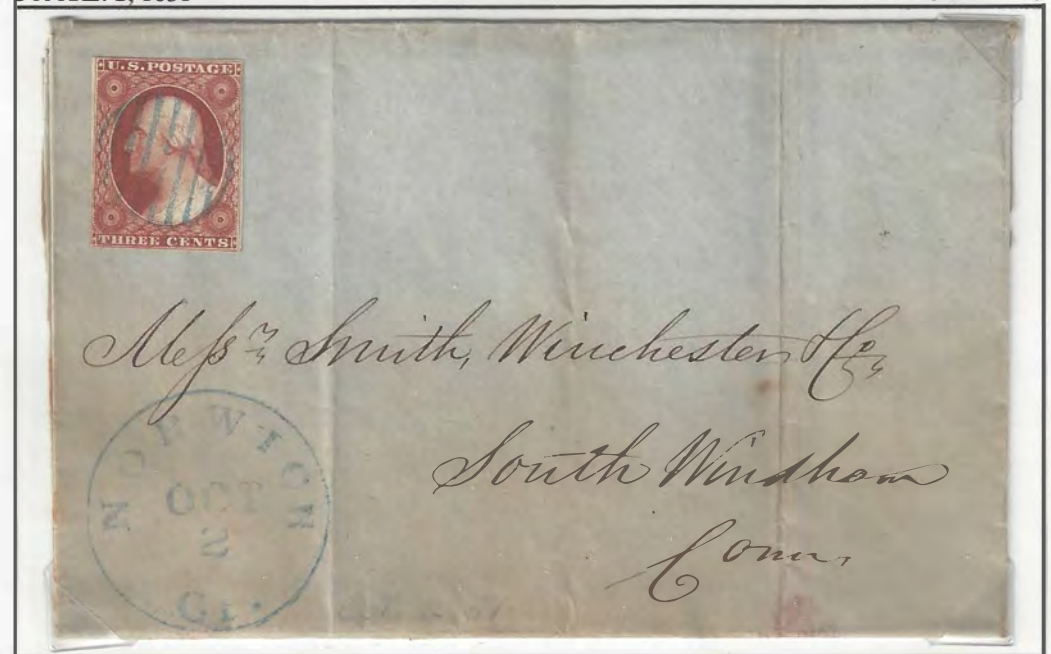 U.S. POSTAGE
THREE CENTS
Messrs Smith, Winchester & Co,
South Windham
Conn,
NORWICH
OCT
2
CT.